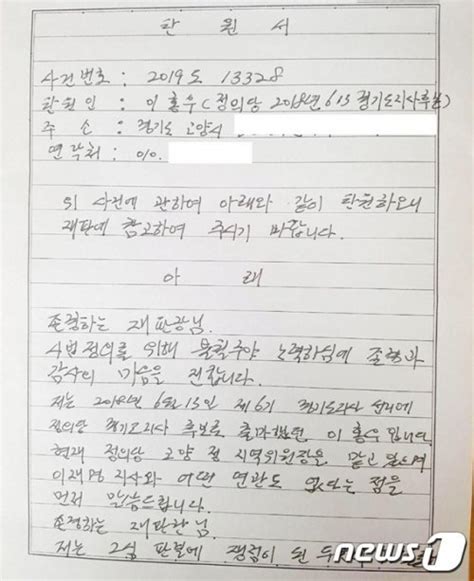 탄 원 서
사건번호 : 2019도 13328
탄원인 : 이홍우(정의당 2018년 6.13 경기도지사후보)
주 소 : 경기도 고양시
연락처 : 010.
위 사건에 관하여 아래와 같이 탄원하오니
재판에 참고하여 주시기 바랍니다.
아 래
존경하는 재판장님.
사법정의를 위해 불철주야 노력하심에 존경과
감사의 마음을 전합니다.
저는 2018년 6월 13일 제6기 경기도지사 선거에
정의당 경기도지사 후보로 출마했던 이홍우입니다.
현재 정의당 고양 정 지역위원장을 맡고 있으며
이재명 지사와 어떤 연관도 없다는 점을
먼저 말씀드립니다.
존경하는 재판관님.
저는 2심 판부에 쟁점이 된 두
news1